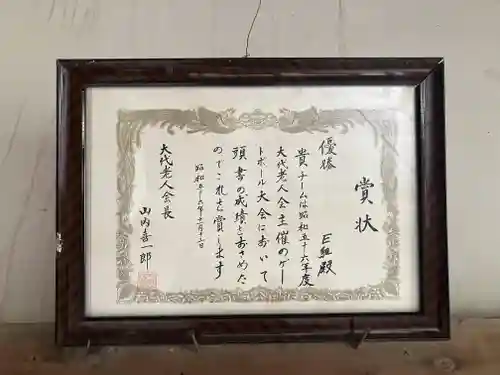 賞状
優勝
E組殿
貴チームは昭和五十六年度
大代老人会主催のゲー
トボール大会において
頭書の成績をおさめた
のでこれを賞します
昭和五十六年十一月十三日
大代老人会長
山内喜一郎